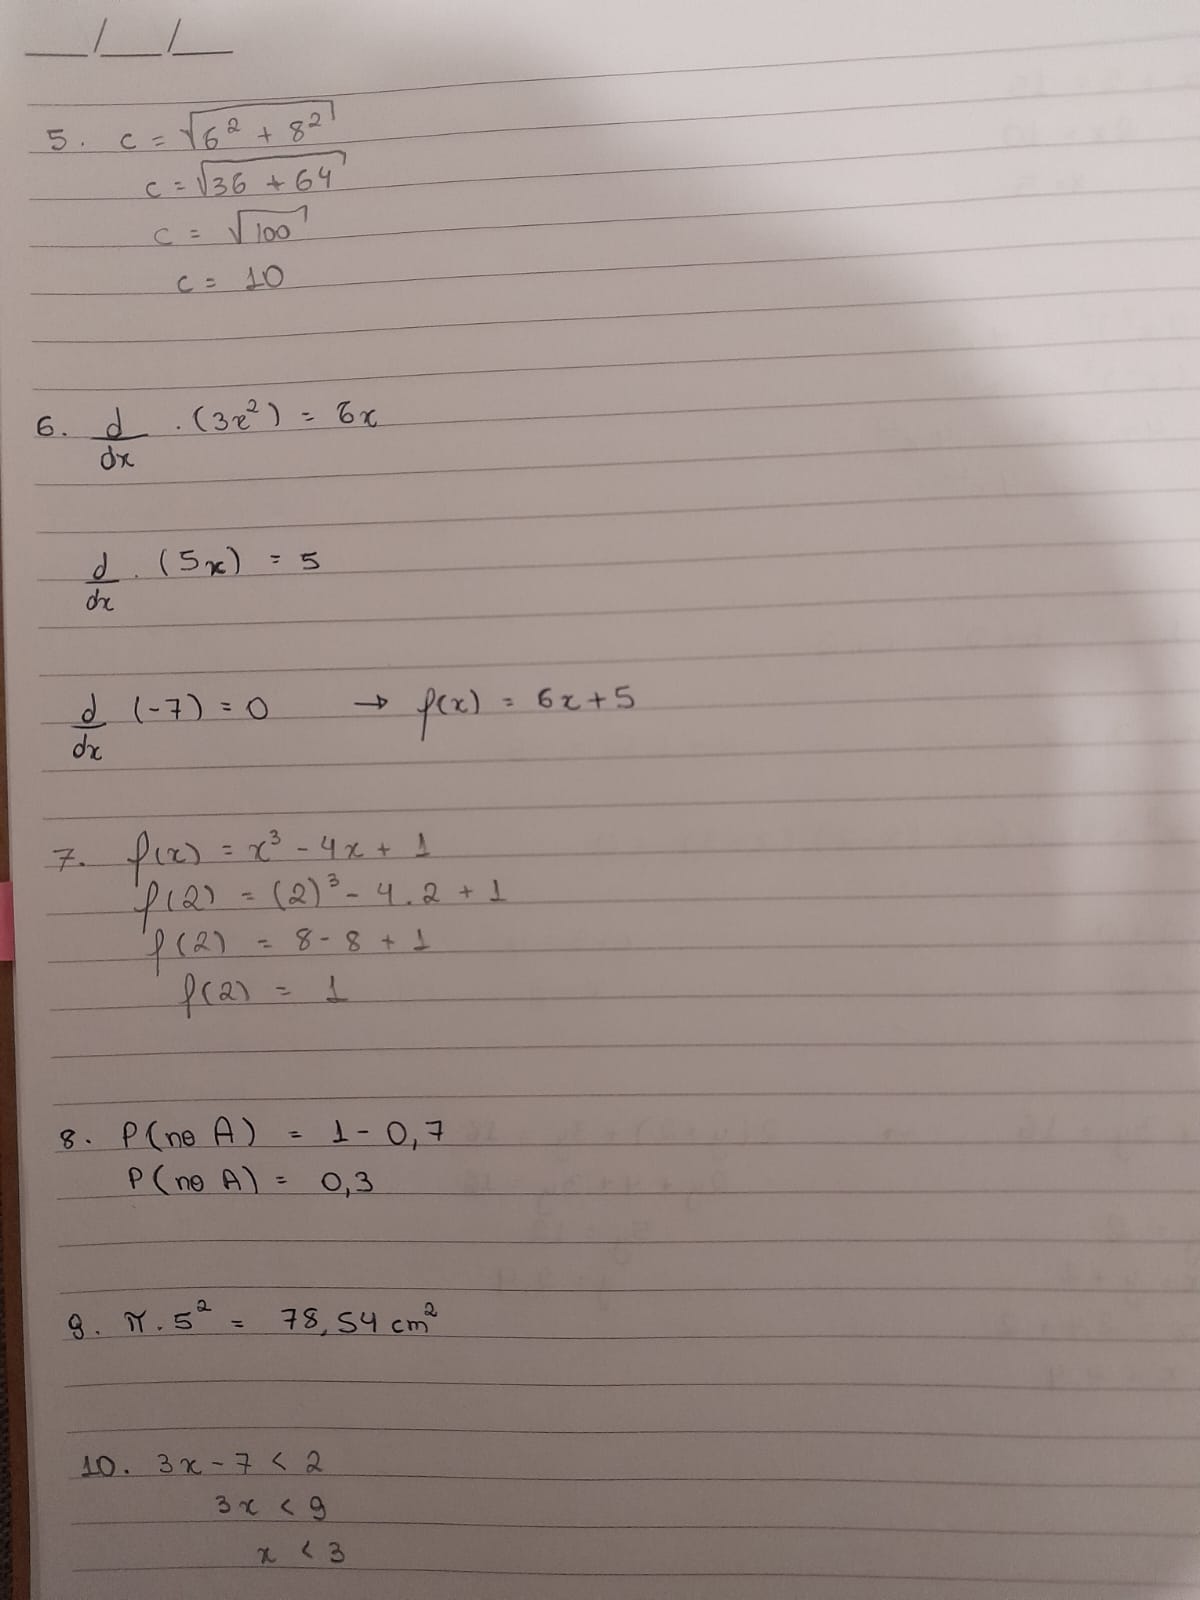 __/__/__
5. c = √6² + 8²
c = √36 + 64
c = √100
c = 10
6. d/dx . (3x²) = 6x
d/dx . (5x) = 5
d/dx (-7) = 0 → f(x) = 6x+5
7. f(x) = x³ - 4x + 1
f(2) = (2)³ - 4.2 + 1
f(2) = 8-8 + 1
f(2) = 1
8. P(no A) = 1- 0,7
P(no A) = 0,3
9. π.5² = 78,54 cm²
10. 3x-7 < 2
3x < 9
x < 3